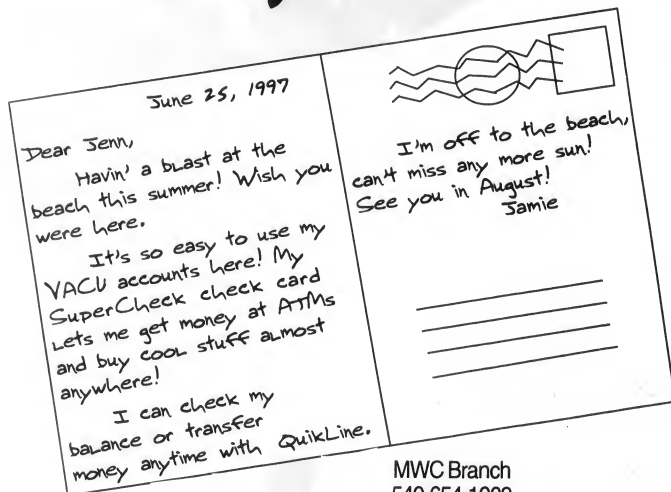 June 25, 1997
Dear Jenn,
Havin' a blast at the
beach this summer! Wish you
were here.
It's so easy to use my
VACU accounts here! My
SuperCheck check card
Lets me get money at ATMs
and buy cool stuff almost
anywhere!
I can check my
balance or transfer
money anytime with QuikLine.
I'm off to the beach,
can't miss any more sun!
See you in August!
Jamie
MWC Branch